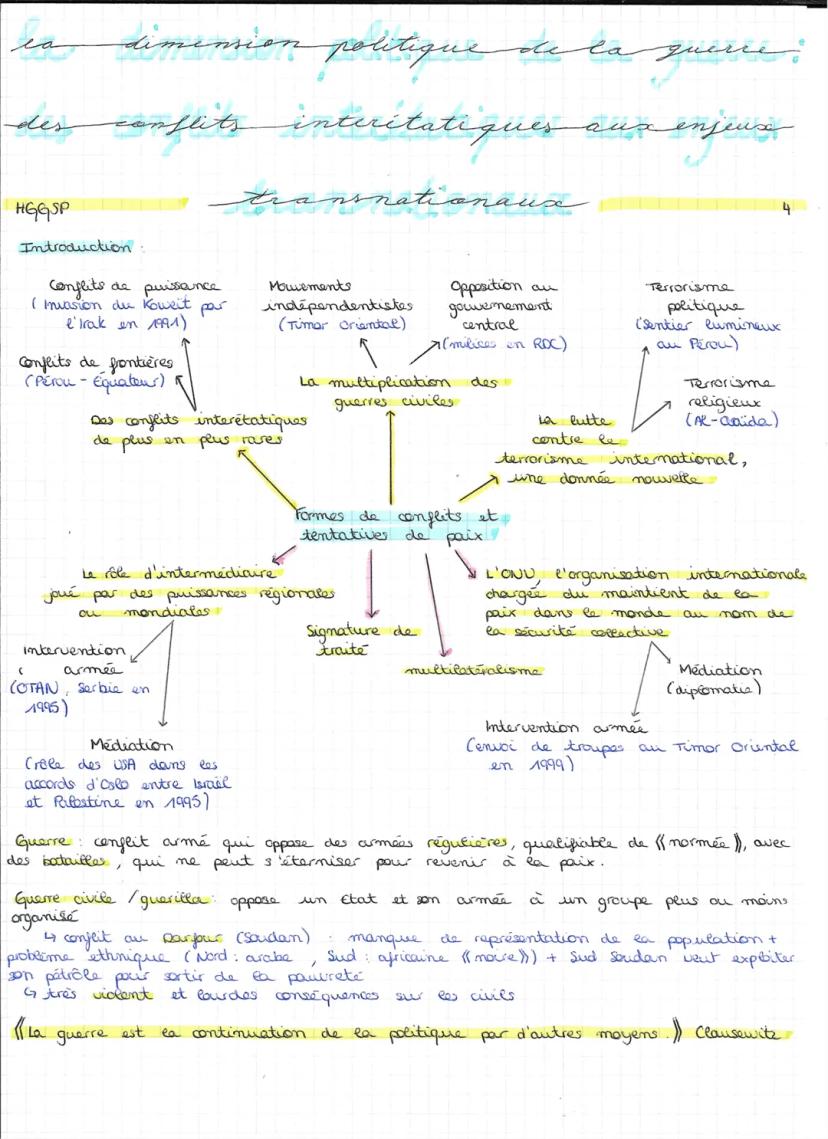 la dimension politique de la guerre :
des conflits interétatiques aux enjeux
transnationaux
HGGSP
4
Introduction :
Conflits de puissance
(Invasion du Koweit par
l'Irak en 1991)
Mouvements
indépendentistes
(Timor Oriental)
Opposition au
gouvernement
central
(milices en RDC)
Terrorisme
politique
(Sentier lumineux
au Pérou)
Conflits de frontières
(Pérou - Équateur)
Terrorisme
religieux
(Al-Qaïda)
La multiplication des
guerres civiles
Des conflits interétatiques
de plus en plus rares
La lutte
contre le
terrorisme international,
une donnée nouvelle
Formes de conflits et
tentatives de paix
Le rôle d'intermédiaire
joué par des puissances régionales
ou mondiales
L'ONU, l'organisation internationale
chargée du maintient de la
paix dans le monde au nom de
la sécurité collective
Signature de
traité
multilatéralisme
Intervention
armée
(OTAN, Serbie en
1995)
Médiation
(diplomatie)
Médiation
(rôle des USA dans les
accords d'Oslo entre Israël
et Palestine en 1995)
Intervention armée
(envoi de troupes au Timor Oriental
en 1999)
Guerre : conflit armé qui oppose des armées régulières, qualifiable de «normée», avec
des batailles, qui ne peut s'éterniser pour revenir à la paix.
Guerre civile / guerilla : oppose un Etat et son armée à un groupe plus ou moins
organisé
↳ conflit au Darfour (Soudan) : manque de représentation de la population +
problème ethnique (Nord : arabe, Sud : africaine «noire») + Sud Soudan veut exploiter
son pétrôle pour sortir de la pauvreté
↳ très violent et lourdes conséquences sur les civils
«La guerre est la continuation de la politique par d'autres moyens.» Clausewitz